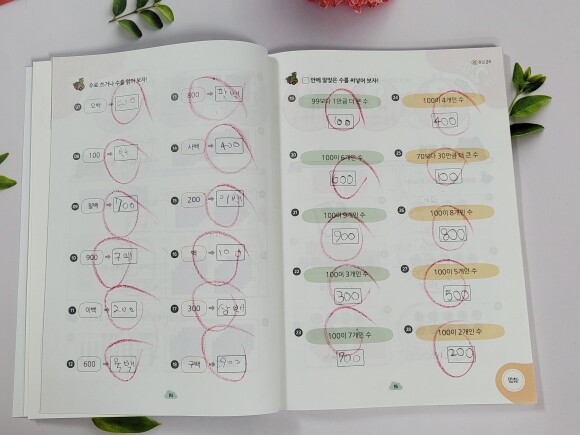 수로 쓰거나 수를 읽어 보자!
07 오백 → 500
08 100 → 백
09 칠백 → 700
10 900 → 구백
11 이백 → 200
12 600 → 육백
13 800 → 팔백
14 사백 → 400
15 200 → 이백
16 백 → 100
17 300 → 삼백
18 구백 → 900
□ 안에 알맞은 수를 써넣어 보자!
19 99보다 1만큼 더 큰 수
100
20 100이 6개인 수
600
21 100이 9개인 수
900
22 100이 3개인 수
300
23 100이 7개인 수
700
24 100이 4개인 수
400
25 70보다 30만큼 더 큰 수
100
26 100이 8개인 수
800
27 100이 5개인 수
500
28 100이 2개인 수
200